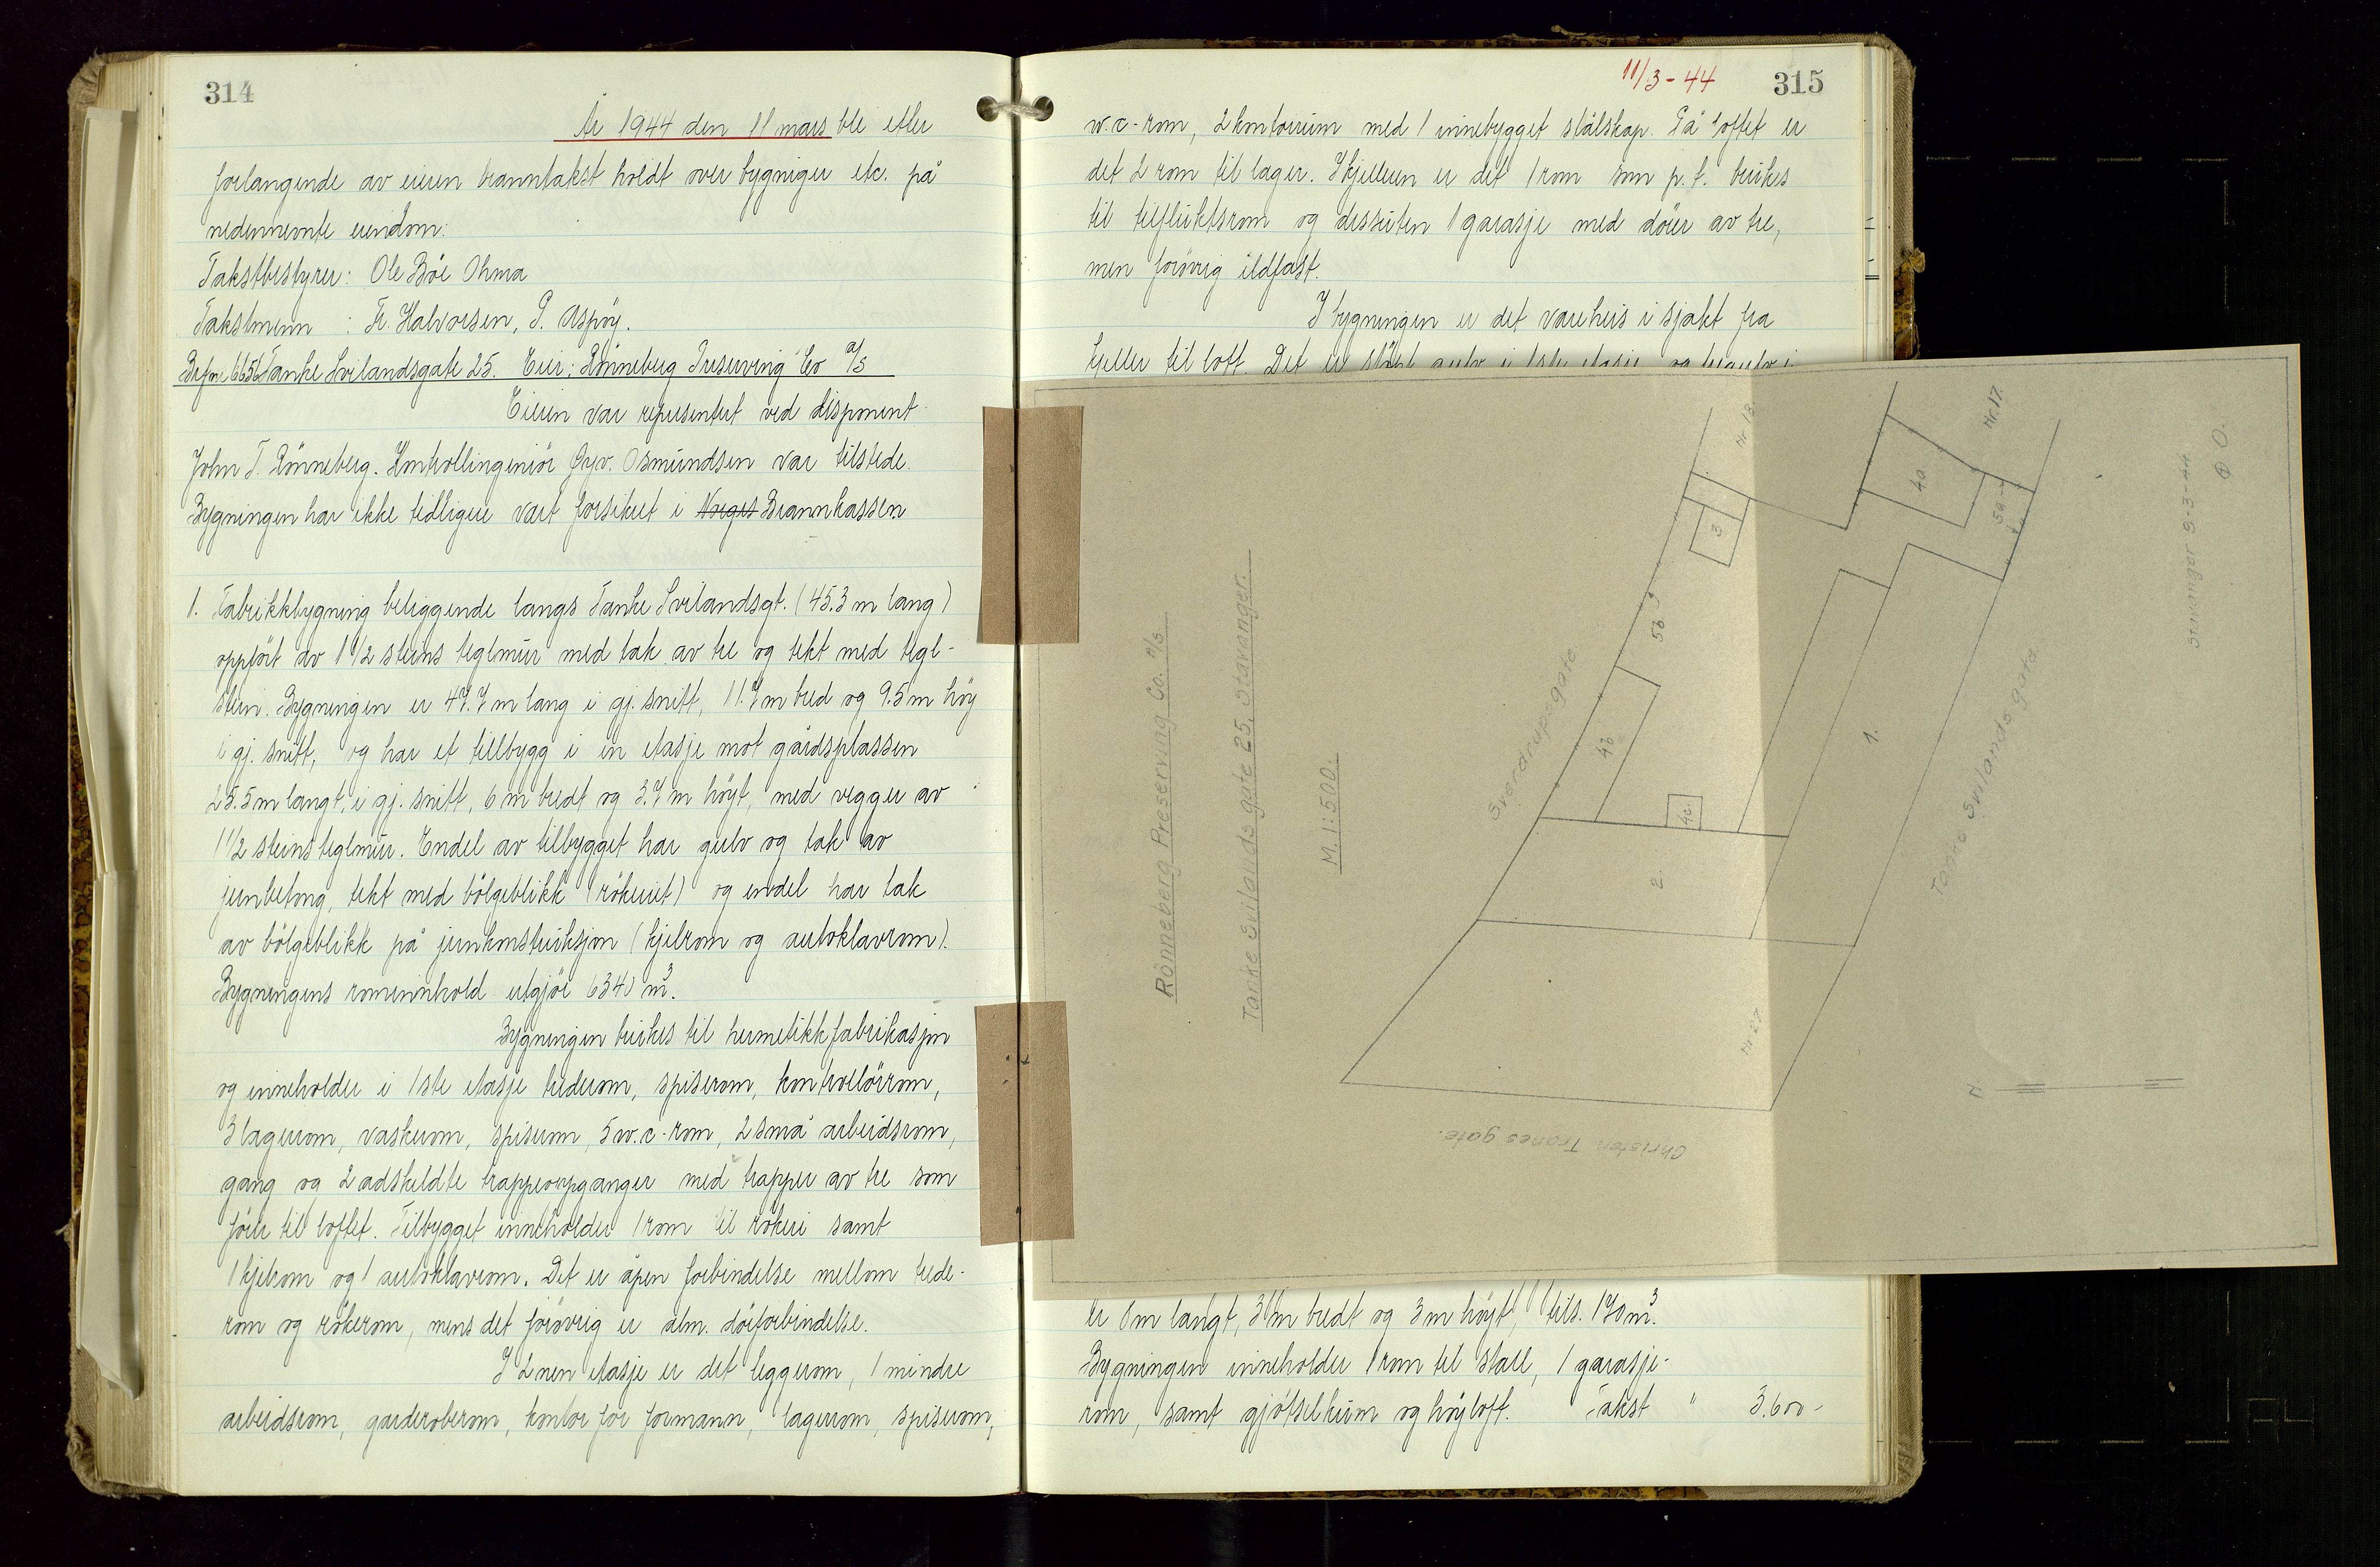 314
År 1944 den 11 mars ble etter
forlangende av eieren branntakst holdt over bygniger etc. på
nedennevnte eiendom:
Takstbestyrer: Ole Böe Ohma
Takstmenn : Fr. Halvorsen, P. Aspöy.
Br.fm. 6656 Tanke Svilandsgate 25. Eier: Rönneberg Preserving Co A/S
Eieren var representert ved disponent
John T. Rönneberg. Kontrollingeniör Öyv. Osmundsen var tilstede.
Bygningen har ikke tidligere vært forsikret i Norges Brannkassen
1. Fabrikkbygning beliggende langs Tanke Svilandsgt. (45.3 m lang)
oppfört av 1 1/2 steins teglmur med tak av tre og tekt med tegl-
stein. Bygningen er 47.7 m lang i gj. snitt, 11.7 m bred og 9.5 m höy
i gj. snitt, og har et tilbygg i en etasje mot gårdsplassen
25.5 m langt, i gj. snitt, 6 m bredt og 3.7 m höyt, med vegger av
1 1/2 steins teglmur. Endel av tilbygget har gulv og tak av
jernbetong, tekt med bölgeblikk (rökeriet) og endel har tak
av bölgeblikk på jernkonstruksjon (kjelrom og autoklavrom).
Bygningens rominnhold utgjör 6340 m³.
Bygningen brukes til hermetikkfabrikasjon
og inneholder i 1ste etasje trederom, spiserom, kontrollörrom,
3 lagerrom, vaskerom, spiserom, 5 w.c-rom, 2 små arbeidsrom,
gang og 2 adskeldte trappeoppganger med trapper av tre som
förer til loftet. Tilbygget inneholder 1 rom til rökeri samt
1 kjelrom og 1 autoklavrom. Det er åpen forbindelse mellom trede-
rom og rökerom, mens det forövrig er alm. dörforbindelse.
I 2nen etasje er det leggerom, 1 mindre
arbeidsrom, garderoberom, kontor for formann, lagerrom, spiserom,
11/3-44
315
w.c-rom, 2 kontorrum med 1 innebygget stålskap. På loftet er
det 2 rom til lager. I kjelleren er det 1 rom som p.t. brukes
til tilfluktsrom og dessuten 1 garasje med dörer av tre,
men forövrig ildfast.
I bygningen er det vareheis i sjakt fra
kjeller til loft. Det er stöpt gulv i 1ste etasje og tregulv i
Rönneberg Preserving Co. A/S
Tanke Svilands gate 25, Stavanger.
M. 1:500.
Sverdrupsgate
Tanke Svilands gate
Christen Tranes gate.
Nr. 13.
Nr. 17.
Nr 27
1.
2.
3
4a
4b
4c
5a
5b
N
Stavanger 9-3-44
Ø O.
er 8 m langt, 3 m bredt og 3 m höyt, tils. 170 m³.
Bygningen inneholder 1 rom til stall, 1 garasje-
rom, samt gjötselkum og höyloft. Takst " 3.600-